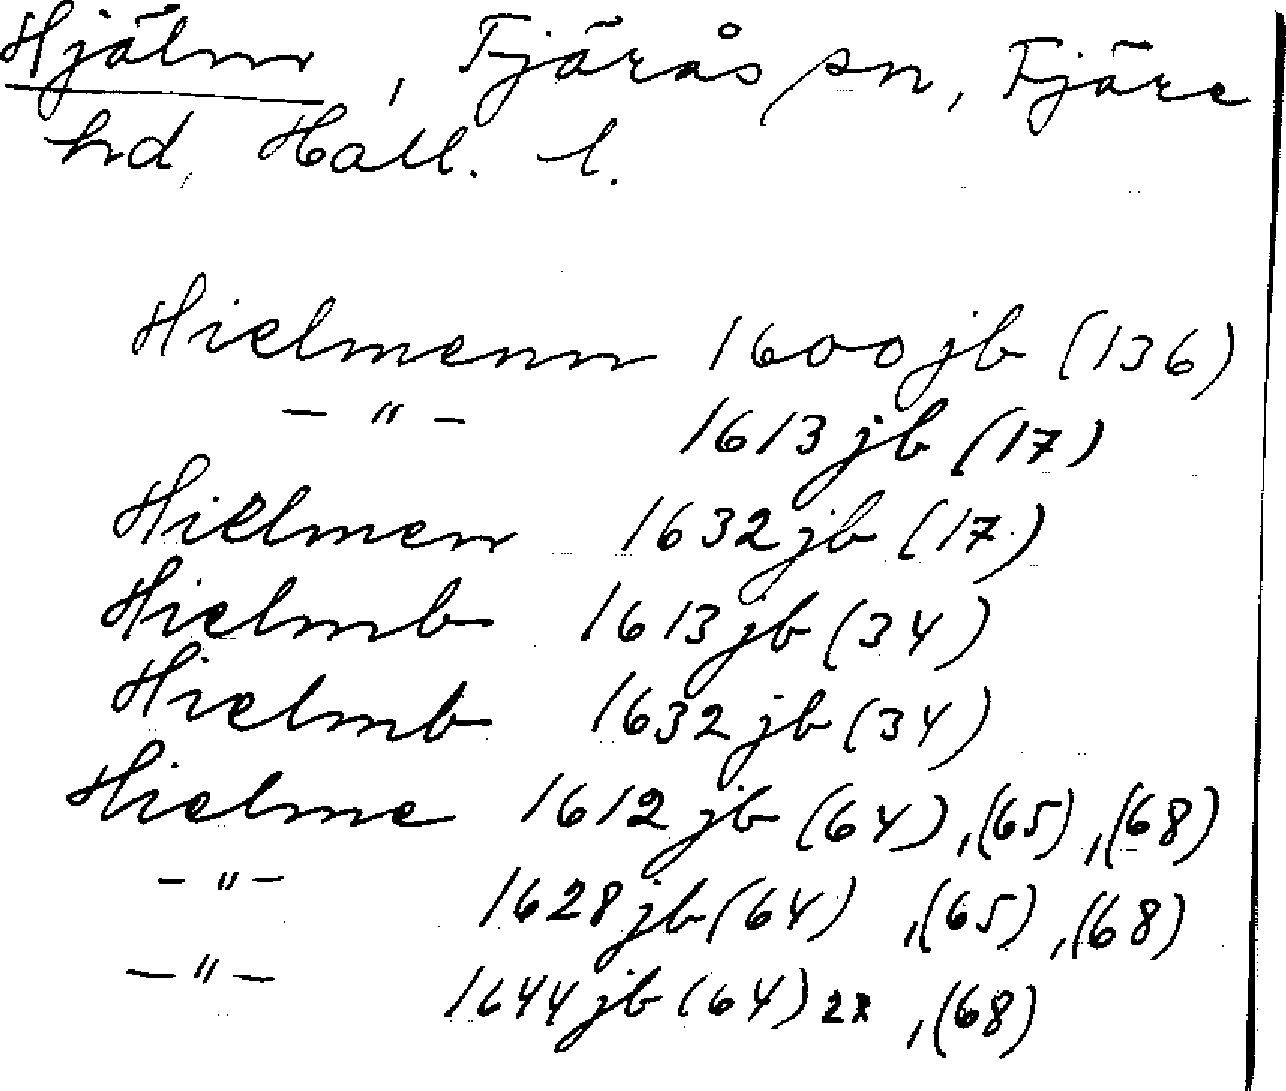 Hjälm, Fjärås sn, Fjäre
hd, Hall. l.
Hielmenn 1600 jb (136)
- " - 1613 jb (17)
Hielmen 1632 jb (17)
Hielmb 1613 jb (34)
Hielmb 1632 jb (34)
Hielme 1612 jb (64), (65), (68)
- " - 1628 jb (64), (65), (68)
- " - 1644 jb (64) 2x, (68)